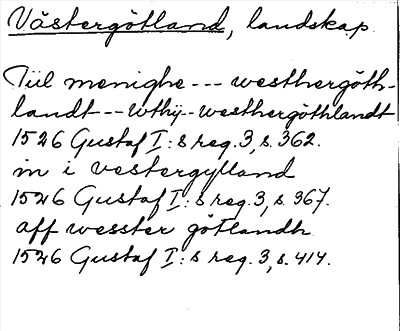 Västergötland, landskap.
Till menighe --- westhergöth-
landt -- wthÿ -- westhergöthlandt
1526 Gustaf I:s reg. 3, s. 362.
in i vestergylland
1526 Gustaf I:s reg. 3, s. 367.
aff wesster götlandh
1526 Gustaf I:s reg. 3, s. 414.